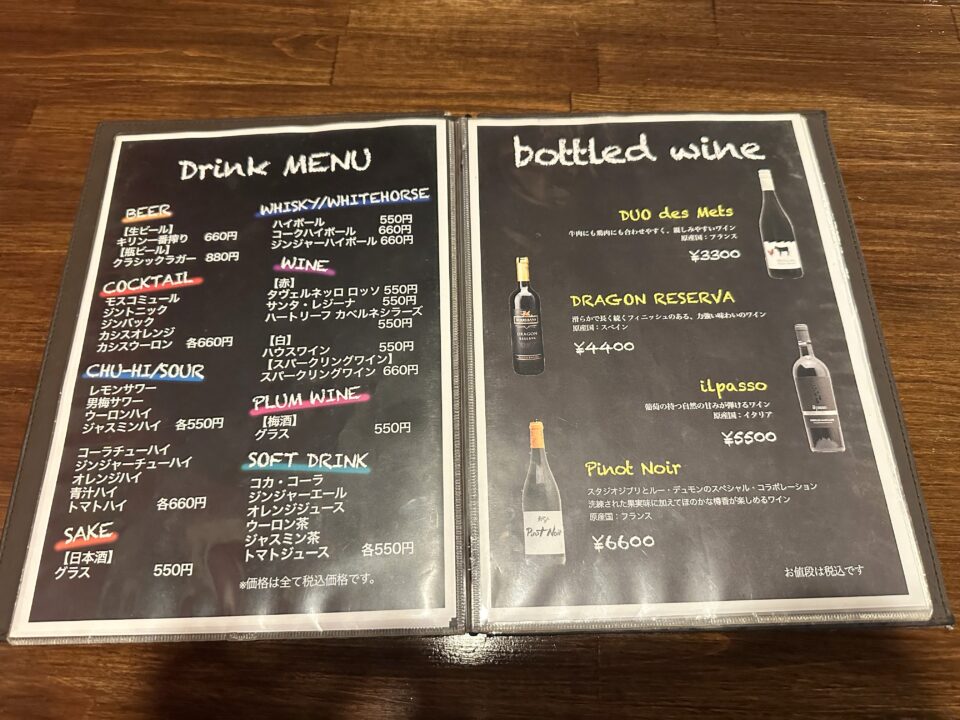 Drink MENU
BEER
【生ビール】
キリン一番搾り 660円
【瓶ビール】
クラシックラガー 880円
COCKTAIL
モスコミュール
ジントニック
ジンバック
カシスオレンジ
カシスウーロン 各660円
CHU-HI/SOUR
レモンサワー
男梅サワー
ウーロンハイ
ジャスミンハイ 各550円
コーラチューハイ
ジンジャーチューハイ
オレンジハイ
青汁ハイ
トマトハイ 各660円
SAKE
【日本酒】
グラス 550円
WHISKY/WHITEHORSE
ハイボール 550円
コークハイボール 660円
ジンジャーハイボール 660円
WINE
【赤】
タヴェルネッロ ロッソ 550円
サンタ・レジーナ 550円
ハートリーフ カベルネシラーズ
550円
【白】
ハウスワイン 550円
【スパークリングワイン】
スパークリングワイン 660円
PLUM WINE
【梅酒】
グラス 550円
SOFT DRINK
コカ・コーラ
ジンジャーエール
オレンジジュース
ウーロン茶
ジャスミン茶
トマトジュース 各550円
※価格は全て税込価格です。
bottled wine
DUO des Mets
牛肉にも鶏肉にも合わせやすく、親しみやすいワイン
原産国：フランス
¥3300
DRAGON RESERVA
滑らかで長く続くフィニッシュのある、力強い味わいのワイン
原産国：スペイン
¥4400
DRAGON
RESERVA
ilpasso
葡萄の持つ自然の甘みが弾けるワイン
原産国：イタリア
¥5500
Pinot Noir
スタジオジブリとルー・デュモンのスペシャル・コラボレーション
洗練された果実味に加えてほのかな樽香が楽しめるワイン
原産国：フランス
¥6600
Pinot Noir
お値段は税込です